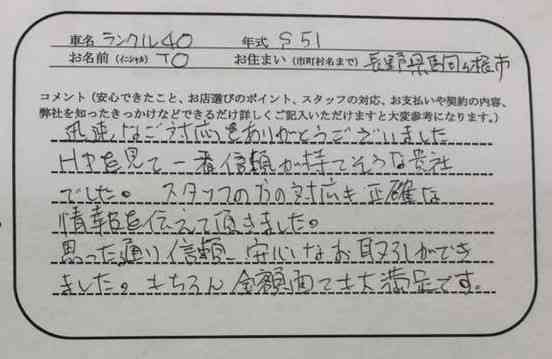 車名 ランクル40 年式 S51
お名前(イニシャル) TO お住まい(市町村名まで) 長野県駒ヶ根市
コメント(安心できたこと、お店選びのポイント、スタッフの対応、お支払いや契約の内容、
弊社を知ったきっかけなどできるだけ詳しくご記入いただけますと大変参考になります。)
迅速なご対応をありがとうございました
HPを見て一番信頼が持てそうな貴社
でした。スタッフの方の対応も正確な
情報を伝えて頂きました。
思った通り信頼、安心なお取引ができ
ました。もちろん金額面でも大満足です。